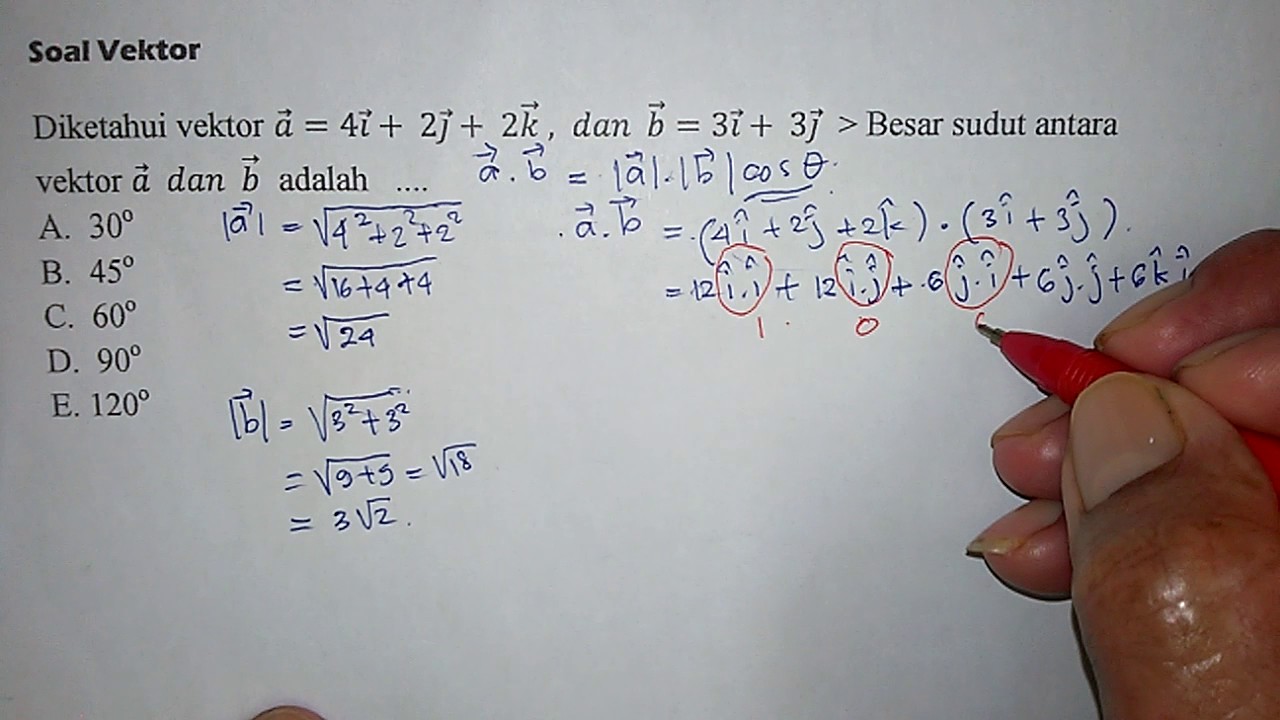 Soal Vektor
Diketahui vektor a⃗ = 4i⃗ + 2j⃗ + 2k⃗ , dan b⃗ = 3i⃗ + 3j⃗ > Besar sudut antara
vektor a⃗ dan b⃗ adalah ....
a⃗ . b⃗ = |a⃗|.|b⃗| cos θ.
A. 30º
B. 45º
C. 60º
D. 90º
E. 120º
|a⃗| = √(4² + 2² + 2²)
= √(16+4+4)
= √24
|b⃗| = √(3² + 3²)
= √(9+9) = √18
= 3√2.
. a⃗ . b⃗ = (4î + 2ĵ + 2k̂) . (3î + 3ĵ).
= 12 î.î + 12 î.ĵ + 6 ĵ.î + 6 ĵ.ĵ + 6 k̂
1 0